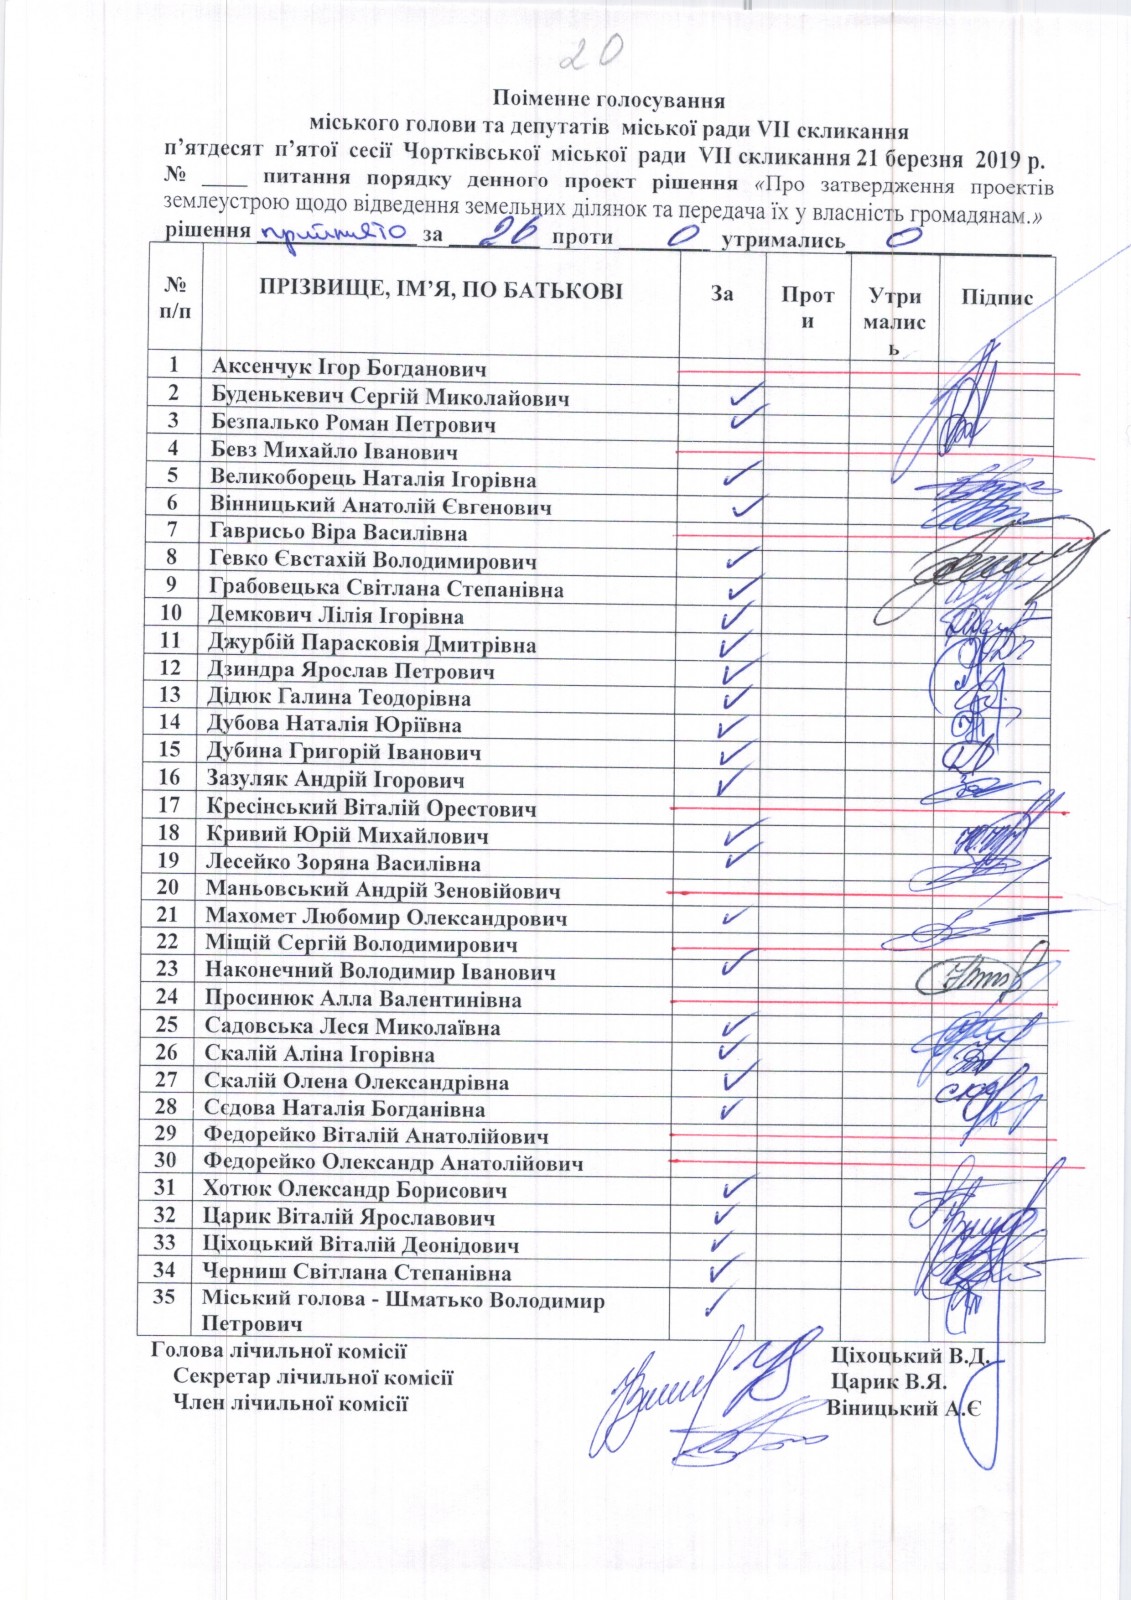 20
Поіменне голосування
міського голови та депутатів міської ради VII скликання
п’ятдесят п’ятої сесії Чортківської міської ради VII скликання 21 березня 2019 р.
№ ____ питання порядку денного проект рішення «Про затвердження проектів
землеустрою щодо відведення земельних ділянок та передача їх у власність громадянам.»
рішення прийнято за 26 проти 0 утримались 0
№ п/п ПРІЗВИЩЕ, ІМ’Я, ПО БАТЬКОВІ За Проти Утрималисьь Підпис
1 Аксенчук Ігор Богданович
2 Буденькевич Сергій Миколайович ✓
3 Безпалько Роман Петрович ✓
4 Бевз Михайло Іванович
5 Великоборець Наталія Ігорівна ✓
6 Вінницький Анатолій Євгенович ✓
7 Гаврисьо Віра Василівна
8 Гевко Євстахій Володимирович ✓
9 Грабовецька Світлана Степанівна ✓
10 Демкович Лілія Ігорівна ✓
11 Джурбій Парасковія Дмитрівна ✓
12 Дзиндра Ярослав Петрович ✓
13 Дідюк Галина Теодорівна ✓
14 Дубова Наталія Юріївна ✓
15 Дубина Григорій Іванович ✓
16 Зазуляк Андрій Ігорович ✓
17 Кресінський Віталій Орестович
18 Кривий Юрій Михайлович ✓
19 Лесейко Зоряна Василівна ✓
20 Маньовський Андрій Зеновійович
21 Махомет Любомир Олександрович ✓
22 Міщій Сергій Володимирович
23 Наконечний Володимир Іванович ✓
24 Просинюк Алла Валентинівна
25 Садовська Леся Миколаївна ✓
26 Скалій Аліна Ігорівна ✓
27 Скалій Олена Олександрівна ✓
28 Сєдова Наталія Богданівна ✓
29 Федорейко Віталій Анатолійович
30 Федорейко Олександр Анатолійович
31 Хотюк Олександр Борисович ✓
32 Царик Віталій Ярославович ✓
33 Ціхоцький Віталій Деонідович ✓
34 Черниш Світлана Степанівна ✓
35 Міський голова - Шматько Володимир ✓
Петрович
Голова лічильної комісії Ціхоцький В.Д.
Секретар лічильної комісії Царик В.Я.
Член лічильної комісії Віницький А.Є